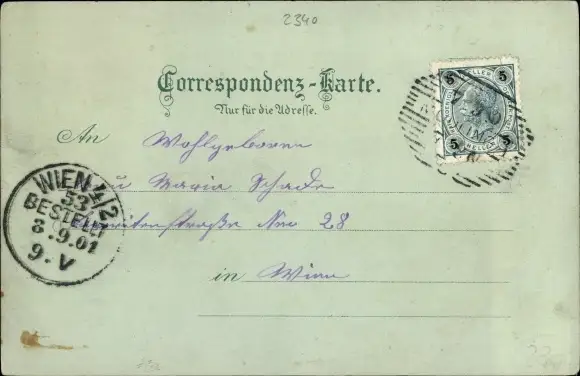 2340
Correspondenz-Karte.
Nur für die Adresse.
5 HELLER 5
5 HELLER 5
An Wohlgeboren
Maria Schade
Nro 28
in Wien
WIEN 4/2
53
BESTELLT
8.9.01
9.V